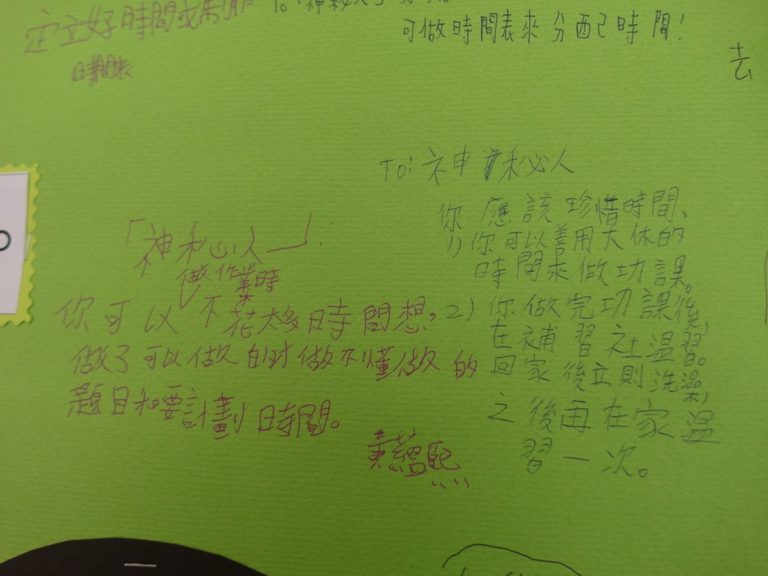 定立好時間
時間表
To:神秘人
可做時間表來分配己時間!
去
To:神秘人
你應該珍惜時間、
1)你可以善用大休的
時間來做功課。
2)你做完功課後,
在補習社温習。
回家後立則洗澡,
之後再在家温
習一次。
「神秘人」:
做作業時
你可以不花太多時間想,
做了可以做的才做不懂做的
題目和要計劃時間。